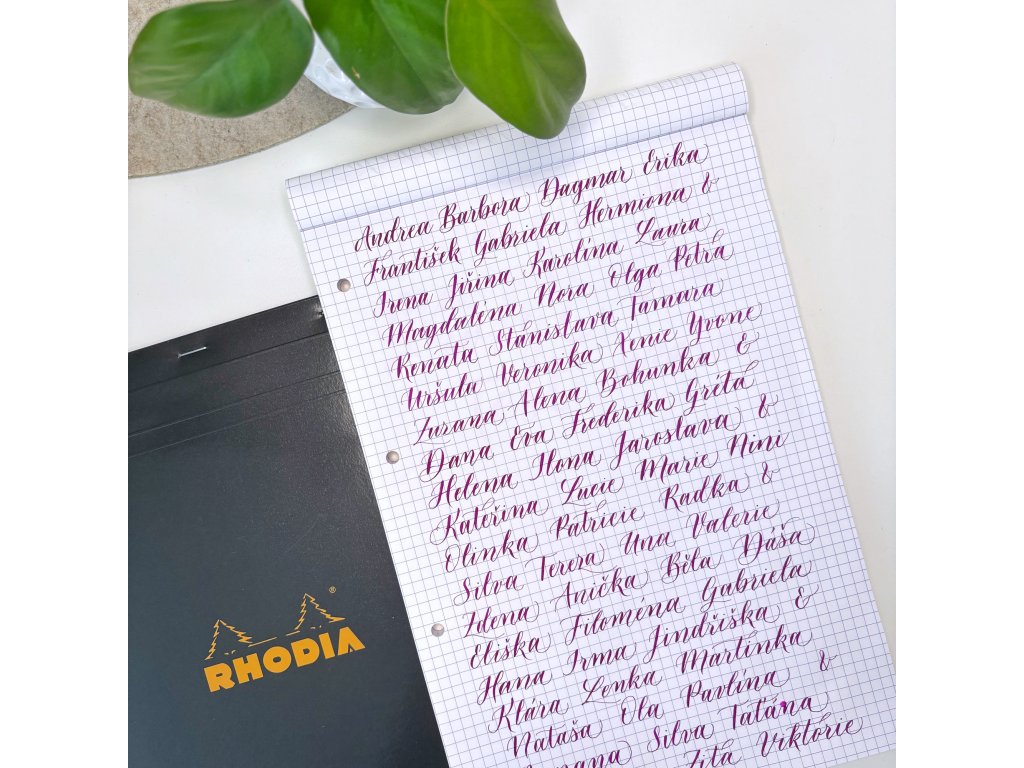 Andrea Barbora Dagmar Erika
František Gabriela Hermiona &
Irena Jiřina Karolína Laura
Magdalena Nora Olga Petra
Renata Stanislava Tamara
Uršula Veronika Xenie Yvone
Zuzana Alena Bohunka &
Dana Eva Frederika Gréta
Helena Ilona Jaroslava &
Kateřina Lucie Marie Nini
Olinka Patricie Radka &
Silva Tereza Una Valerie
Zdena Anička Běla Dáša
Eliška Filomena Gabriela
Hana Irma Jindřiška &
Klára Lenka Martinka
Nataša Ola Pavlína &
Silva Taťána
Zita Viktórie
RHODIA®